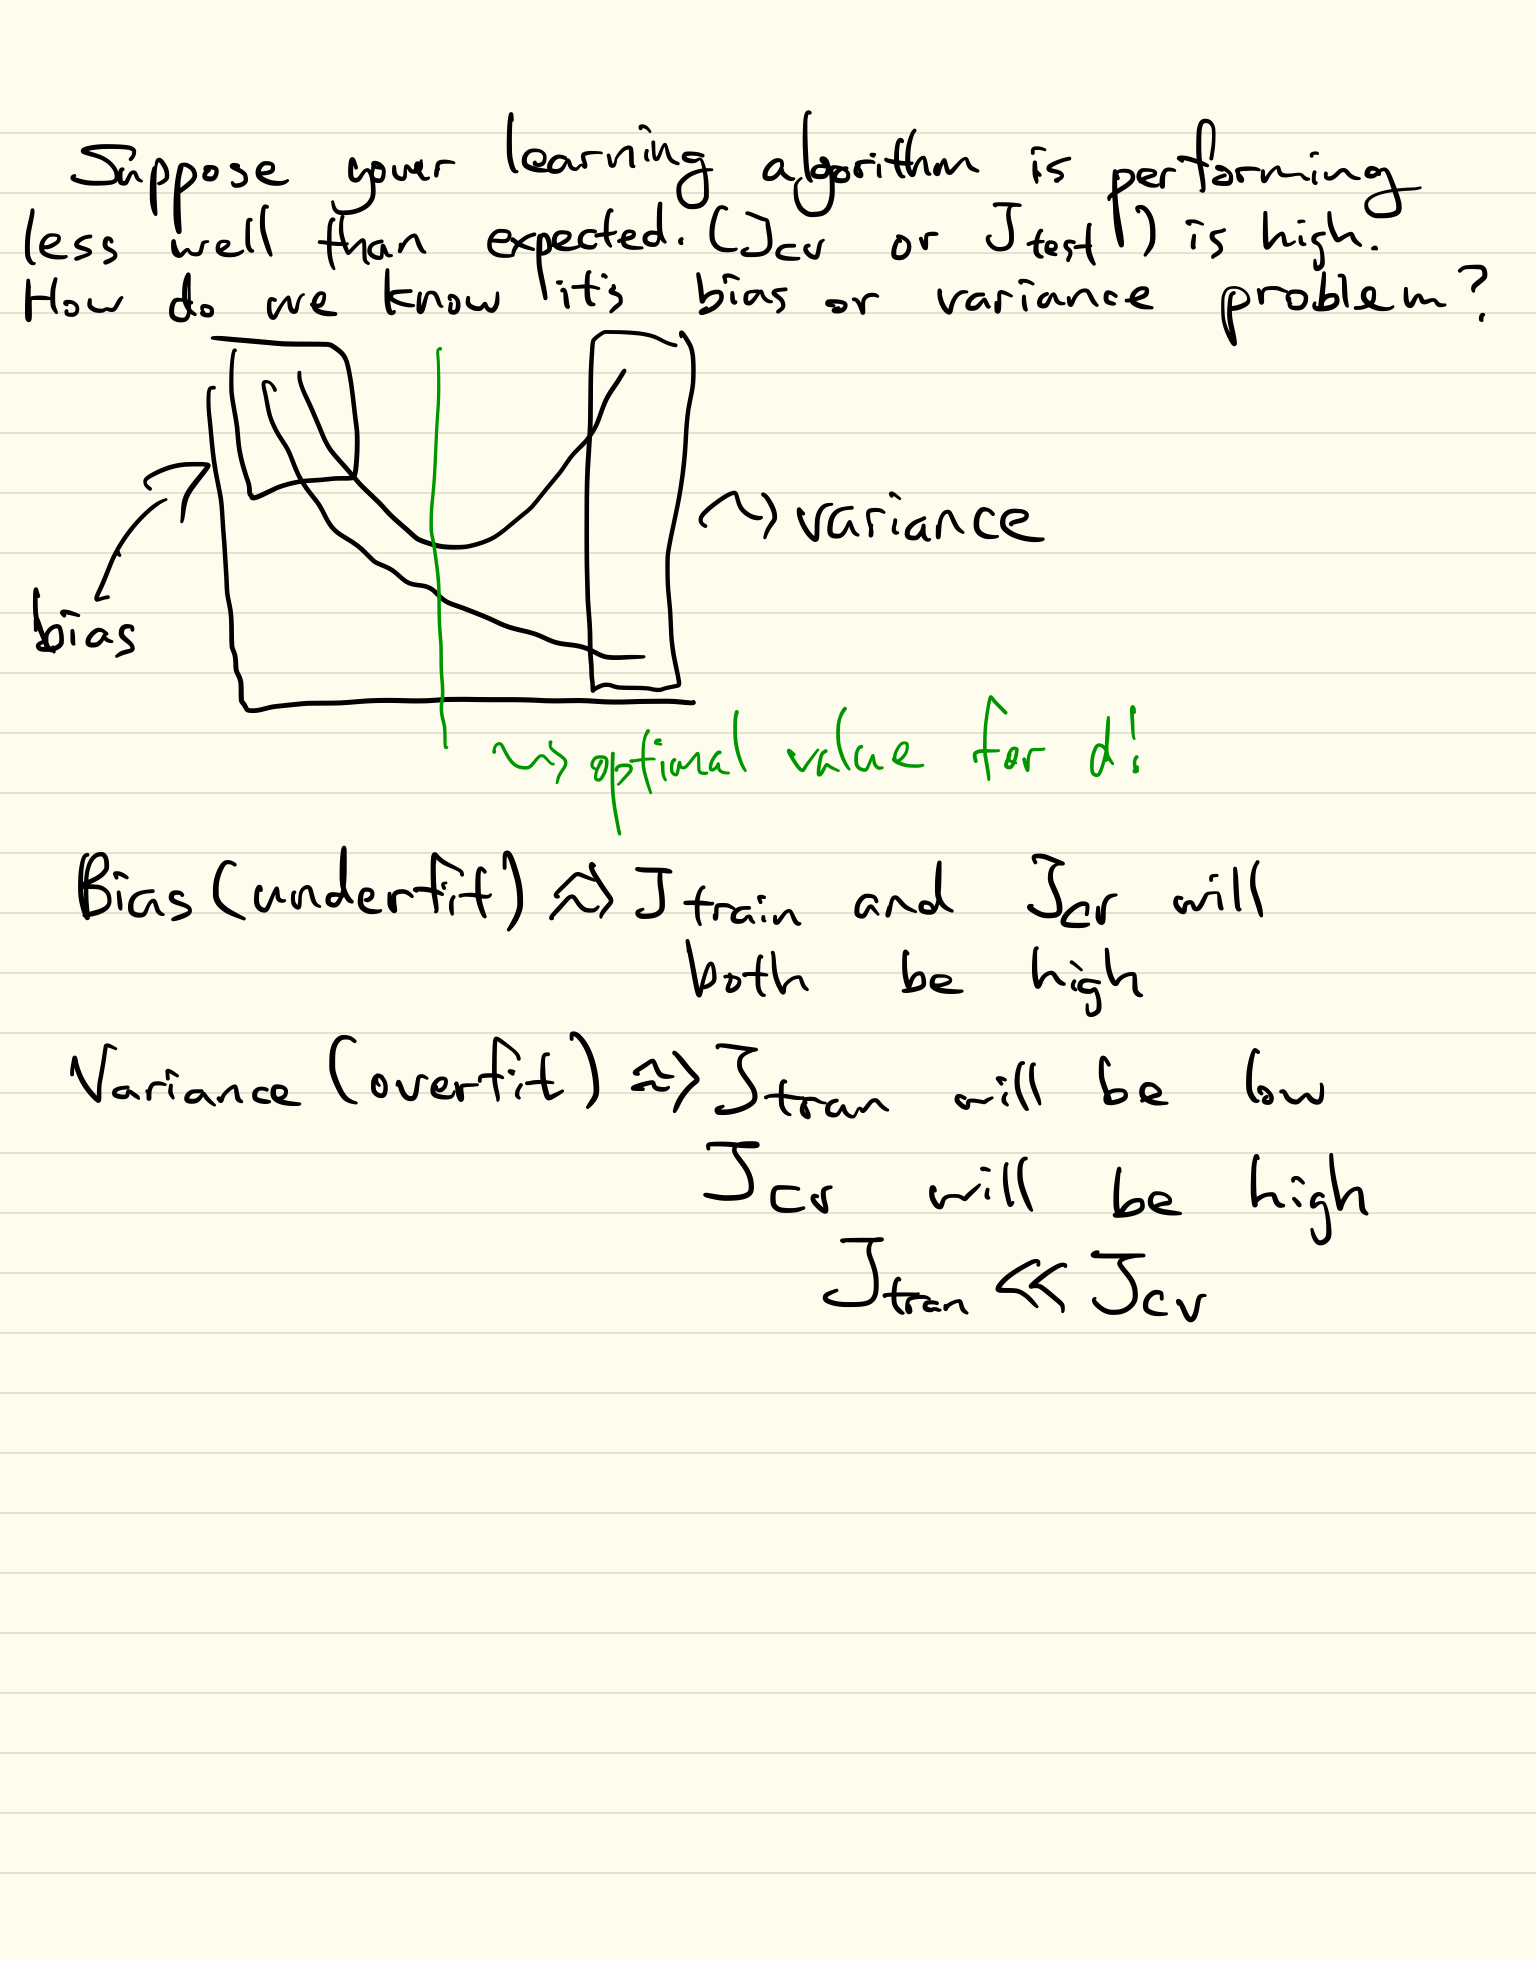 Suppose your learning algorithm is performing
less well than expected. (Jcv or Jtest) is high.
How do we know it's bias or variance problem?
variance
bias
optimal value for d!
Bias (underfit) ⇒ Jtrain and Jcv will
both be high
Variance (overfit) ⇒ Jtran will be low
Jcv will be high
Jtran << Jcv